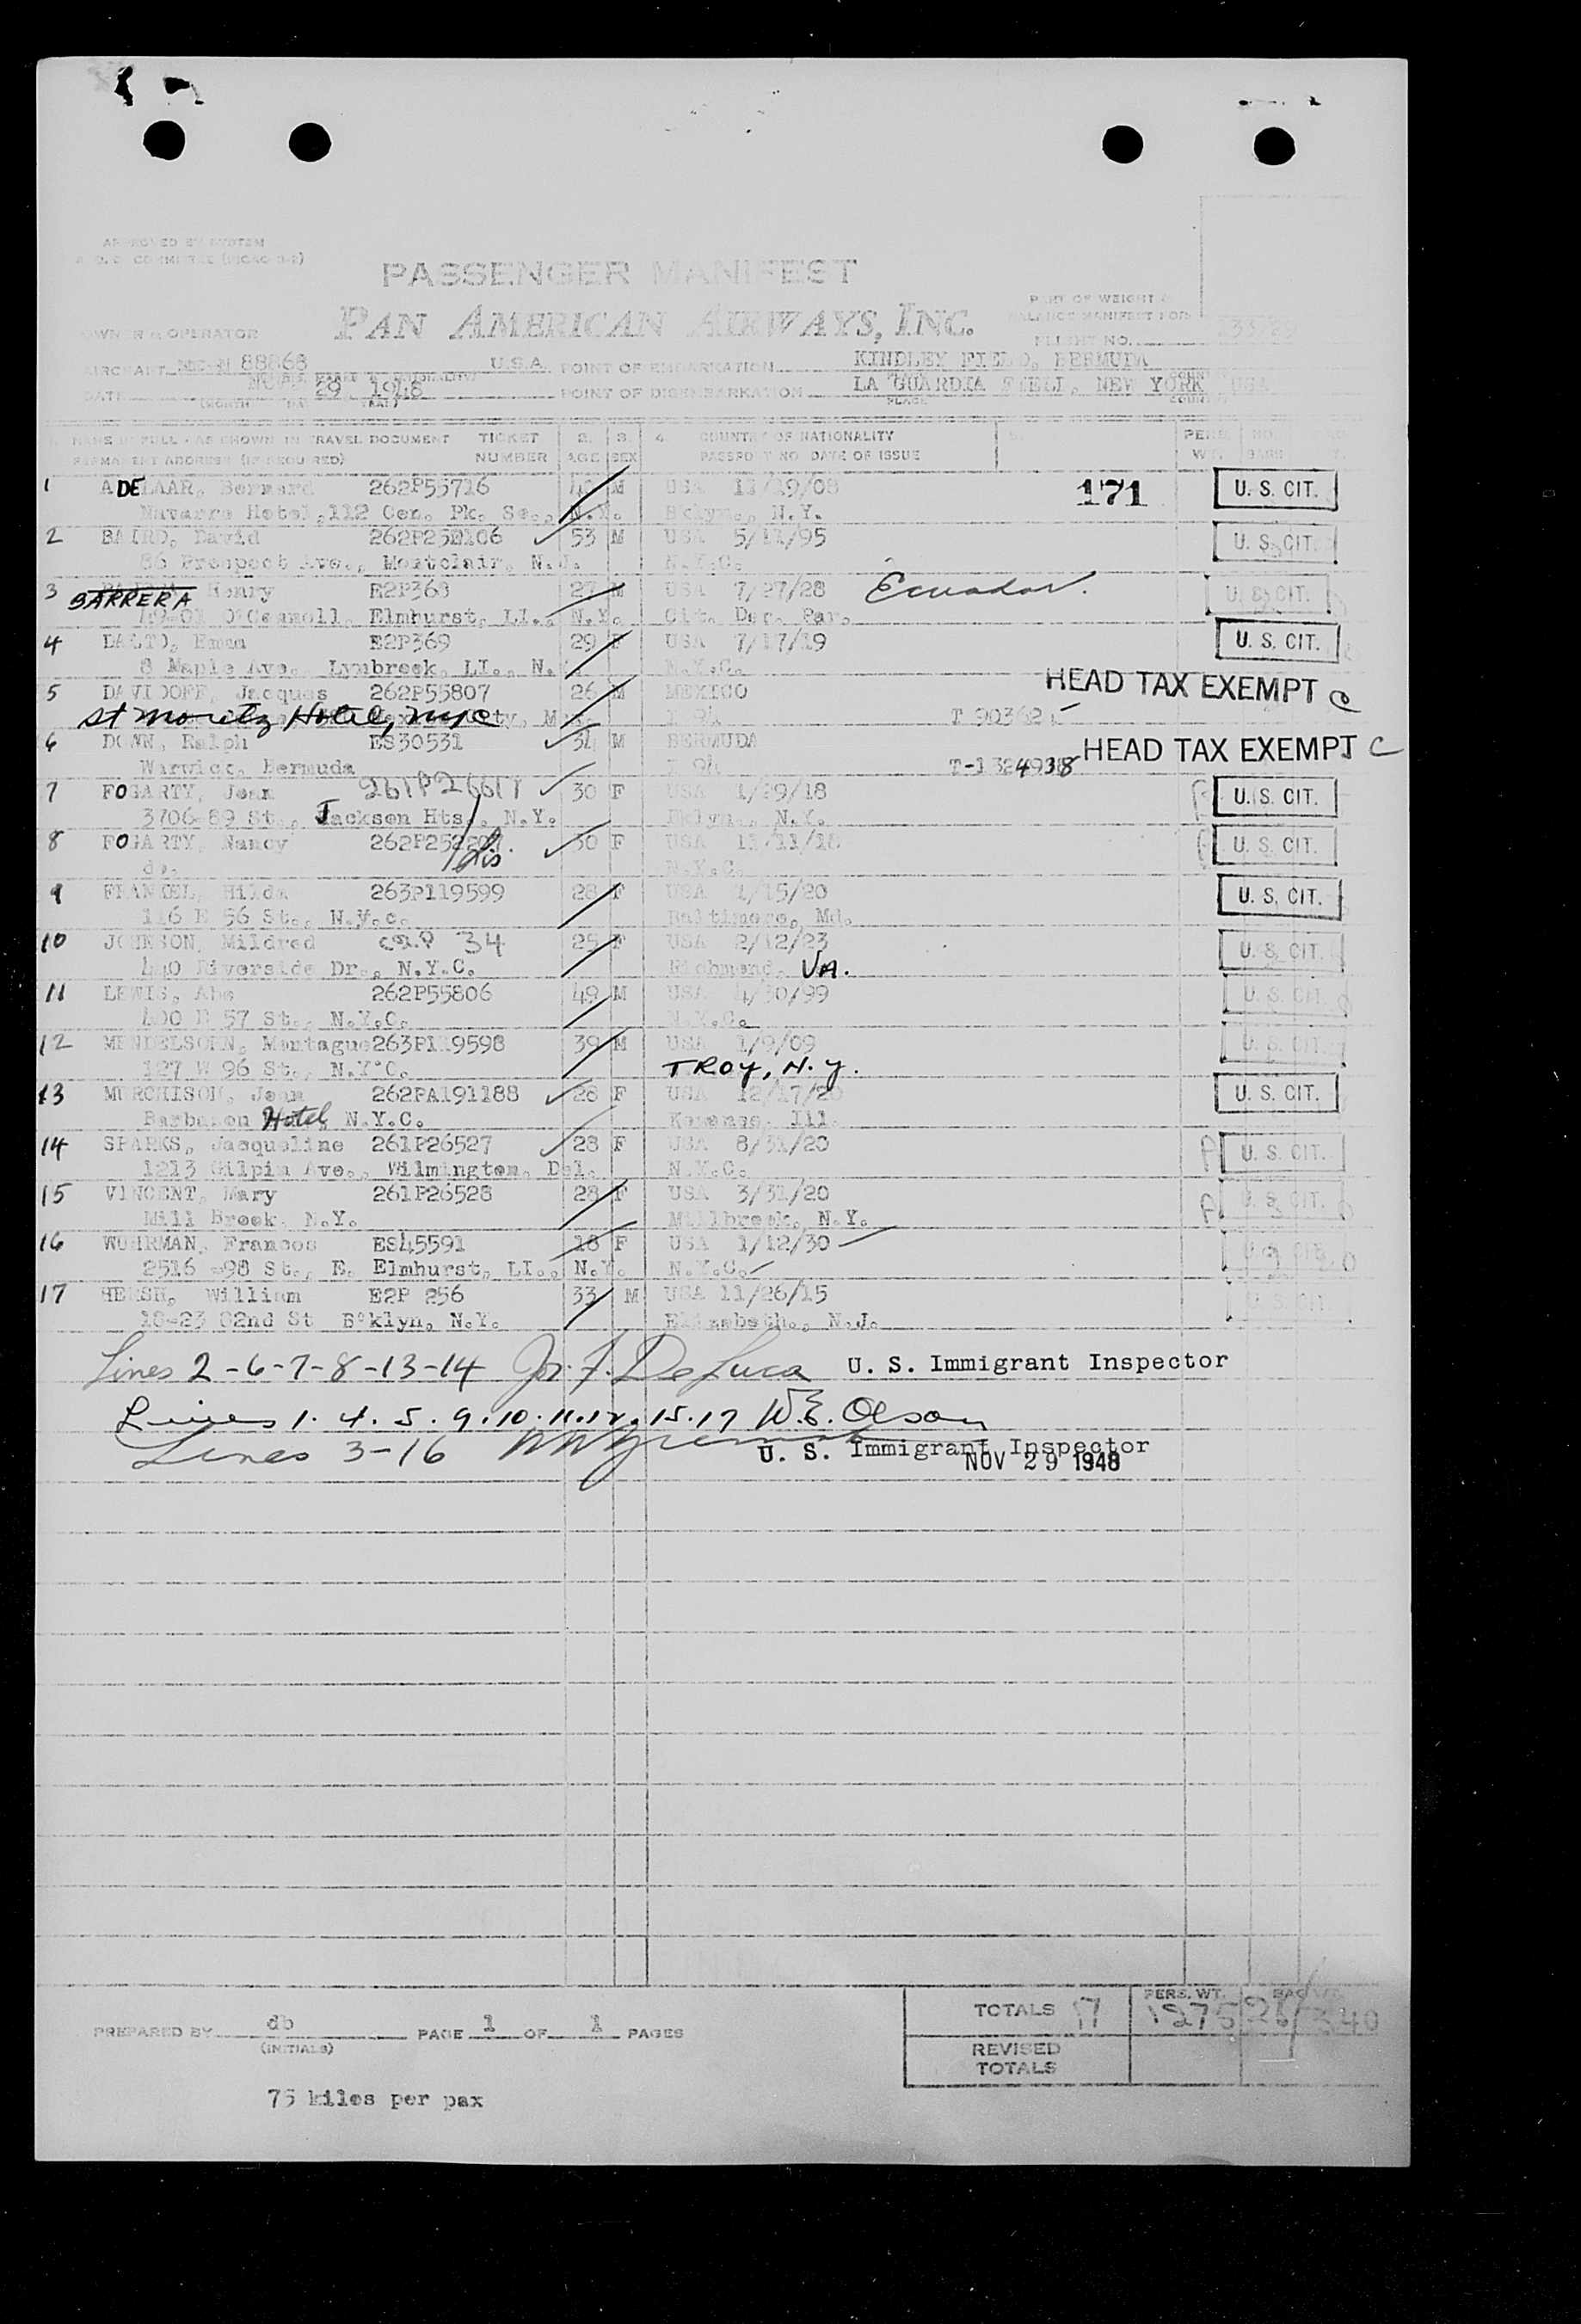 APPROVED BY SYSTEM
PASSENGER MANIFEST
PAN AMERICAN AIRWAYS, INC.
PART OF WEIGHT &
BALANCE MANIFEST FOR
FLIGHT NO.
OWNER or OPERATOR
AIRCRAFT 88868 U.S.A. POINT OF EMBARKATION KINDLEY FIELD, BERMUDA
DATE 29 1948 POINT OF DISEMBARKATION LA GUARDIA FIELD, NEW YORK USA
(MONTH DAY YEAR) PLACE COUNTRY
NAME IN FULL - AS SHOWN IN TRAVEL DOCUMENT TICKET 2. 3. 4. COUNTRY OF NATIONALITY PERS.
PERMANENT ADDRESS (IF REQUIRED) NUMBER AGE SEX PASSPORT NO DATE OF ISSUE WT.
1 ADELAAR, Bernard 262P55716 M USA 11/19/08 171 U. S. CIT.
Navarro Hotel, 112 Cen. Pk. So., N.Y. Bklyn., N.Y.
2 BAIRD, David 53 M USA 5/11/95 U. S. CIT.
86 Prospect Ave., Montclair, N.J. N.Y.C.
3 BARRERA Henry E2P368 27 M USA 7/27/28 Ecuador. U. S. CIT.
O'Connell, Elmhurst, LI., N.Y. Cit. Dec. Par.
4 DALTO, Emma E2P369 29 F USA 7/17/19 U. S. CIT.
8 Maple Ave., Lynbrook, LI., N. N.Y.C.
5 DAVIDOFF, Jacques 262P55807 26 M MEXICO HEAD TAX EXEMPT C
St Moritz Hotel, NYC
6 DONN, Ralph ES30531 34 M BERMUDA HEAD TAX EXEMPT C
Warwick, Bermuda
7 FOGARTY, Jean 30 F USA 1/29/18 U. S. CIT.
3706-89 St., Jackson Hts., N.Y. Bklyn., N.Y.
8 FOGARTY, Nancy 30 F USA 11/11/18 U. S. CIT.
do. N.Y.C.
9 FRANKEL, Hilda 263P119599 28 F USA 1/15/20 U. S. CIT.
116 E 56 St., N.Y.C. Baltimore, Md.
10 JOHNSON, Mildred 34 25 F USA 2/12/23 U. S. CIT.
440 Riverside Dr., N.Y.C. Richmond, VA.
11 LEWIS, Abe 262P55806 49 M USA 4/30/99 U. S. CIT.
400 E 57 St., N.Y.C. N.Y.C.
12 MENDELSOHN, Montague 263P119598 39 M USA 1/9/09 U. S. CIT.
127 W 96 St., N.Y.C. TROY, N.Y.
13 MURCHISON, Jean 262PA191188 28 F USA 12/17/20 U. S. CIT.
Barbazon Hotel N.Y.C. Kewanee, Ill.
14 SPARKS, Jacqueline 261P26527 28 F USA 8/31/20 U. S. CIT.
1213 Gilpin Ave., Wilmington, Del. N.Y.C.
15 VINCENT, Mary 261P26528 28 F USA 3/31/20 U. S. CIT.
Mill Brook, N.Y. Millbrook, N.Y.
16 WUHRMAN, Frances ES45591 18 F USA 1/12/30 U. S. CIT.
2516 -98 St., E. Elmhurst, LI., N.Y. N.Y.C.
17 HERSH, William E2P 256 33 M USA 11/26/15 U. S. CIT.
18-23 82nd St Bklyn, N.Y. N.J.
Lines 2-6-7-8-13-14 Jos. F. DeLuca U. S. Immigrant Inspector
Lines 1. 4. 5. 9. 10. 11. 12. 15. 17 W.E. Olson
Lines 3-16 U. S. Immigrant Inspector
NOV 29 1948
TOTALS 17 PERS. WT. 1275
PREPARED BY db PAGE 1 OF 1 PAGES
(INITIALS)
REVISED
TOTALS
75 kilos per pax